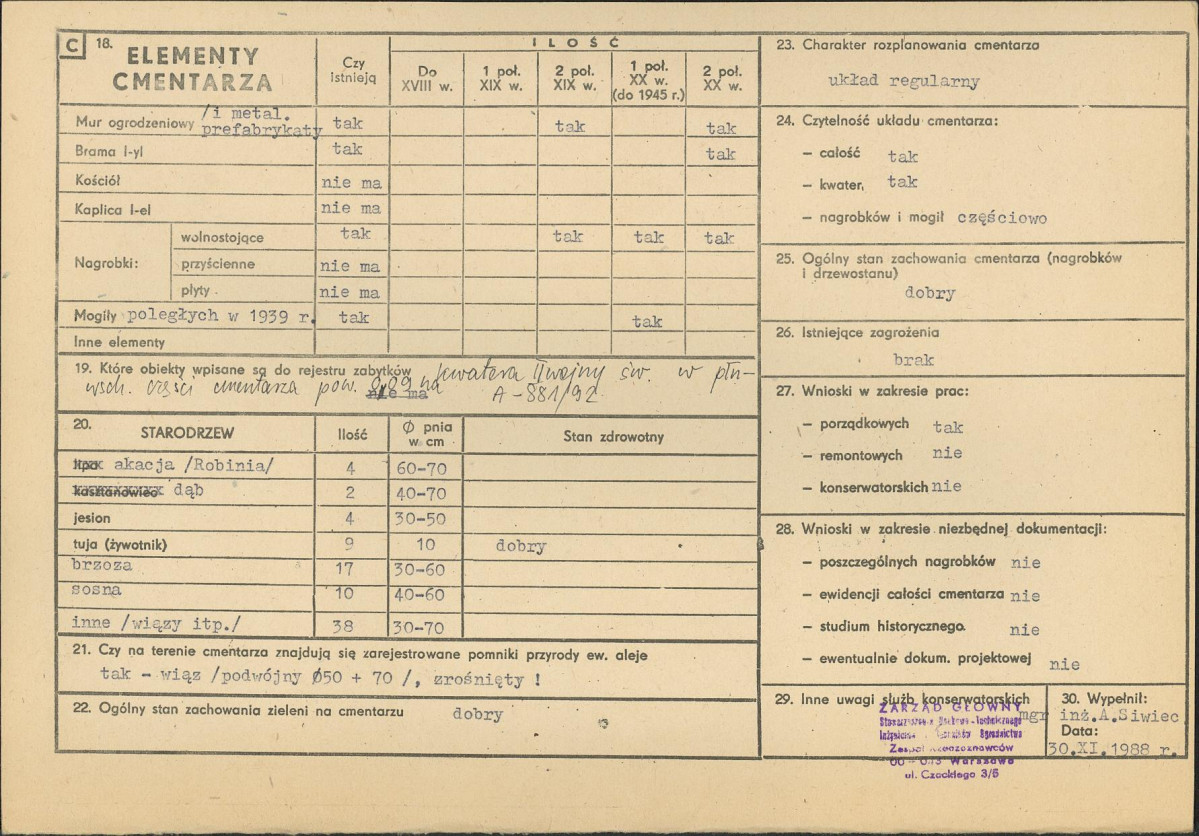 C 18. ELEMENTY CMENTARZA
Czy istnieją
ILOŚĆ
Do XVIII w.
1 poł. XIX w.
2 poł. XIX w.
1 poł. XX w. (do 1945 r.)
2 poł. XX w.
Mur ogrodzeniowy /i metal. prefabrykaty tak tak tak
Brama I-yl tak tak
Kościół nie ma
Kaplica I-el nie ma
Nagrobki:
wolnostojące tak tak tak tak
przyścienne nie ma
płyty nie ma
Mogiły poległych w 1939 r. tak tak
Inne elementy
19. Które obiekty wpisane są do rejestru zabytków kwatera II wojny św. w płn-
wsch. części cmentarza pow. 0,09 ha nie ma A-881/92
20. STARODRZEW Ilość Ø pnia w cm Stan zdrowotny
lipa akacja /Robinia/ 4 60-70
kasztanowiec dąb 2 40-70
jesion 4 30-50
tuja (żywotnik) 9 10 dobry
brzoza 17 30-60
sosna 10 40-60
inne /wiązy itp./ 38 30-70
21. Czy na terenie cmentarza znajdują się zarejestrowane pomniki przyrody ew. aleje
tak - wiąz /podwójny Ø50 + 70 /, zrośnięty !
22. Ogólny stan zachowania zieleni na cmentarzu dobry
23. Charakter rozplanowania cmentarza
układ regularny
24. Czytelność układu cmentarza:
— całość tak
— kwater, tak
— nagrobków i mogił częściowo
25. Ogólny stan zachowania cmentarza (nagrobków
i drzewostanu)
dobry
26. Istniejące zagrożenia
brak
27. Wnioski w zakresie prac:
— porządkowych tak
— remontowych nie
— konserwatorskich nie
28. Wnioski w zakresie niezbędnej dokumentacji:
— poszczególnych nagrobków nie
— ewidencji całości cmentarza nie
— studium historycznego. nie
— ewentualnie dokum. projektowej nie
29. Inne uwagi służb konserwatorskich
ZARZĄD GŁÓWNY
Inżynierów Ogrodnictwa
Zespół Rzeczoznawców
Warszawa
ul. Czackiego 3/5
30. Wypełnił:
mgr inż.A.Siwiec
Data:
30.XI.1988 r.